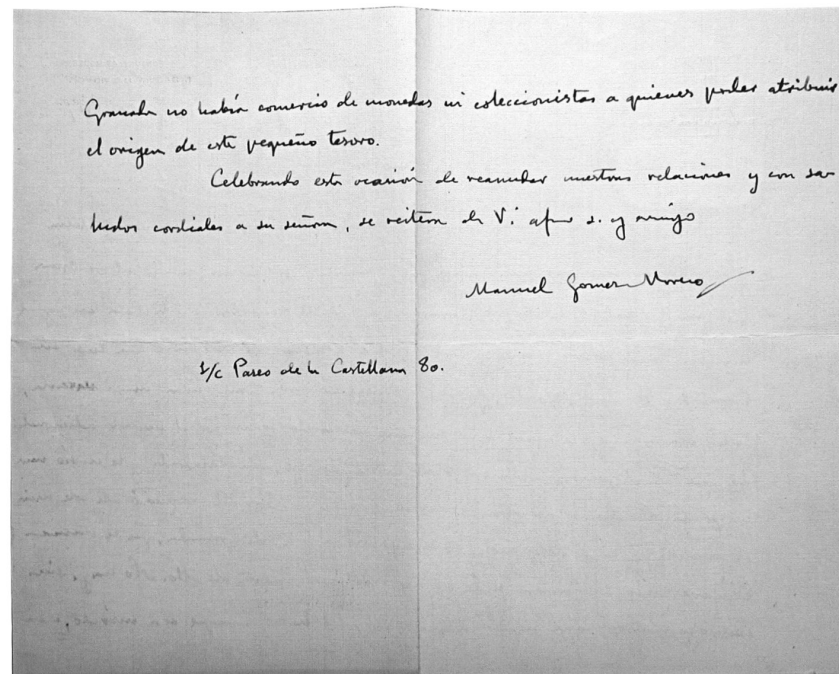 Granada no había comercio de monedas ni coleccionistas a quienes poder atribuir
el origen de este pequeño tesoro.
Celebrando esta ocasión de reanudar nuestras relaciones y con sa-
ludos cordiales a su señora, se reitera de V. afmo s. y amigo
Manuel Gomez-Moreno
s/c Paseo de la Castellana 80.